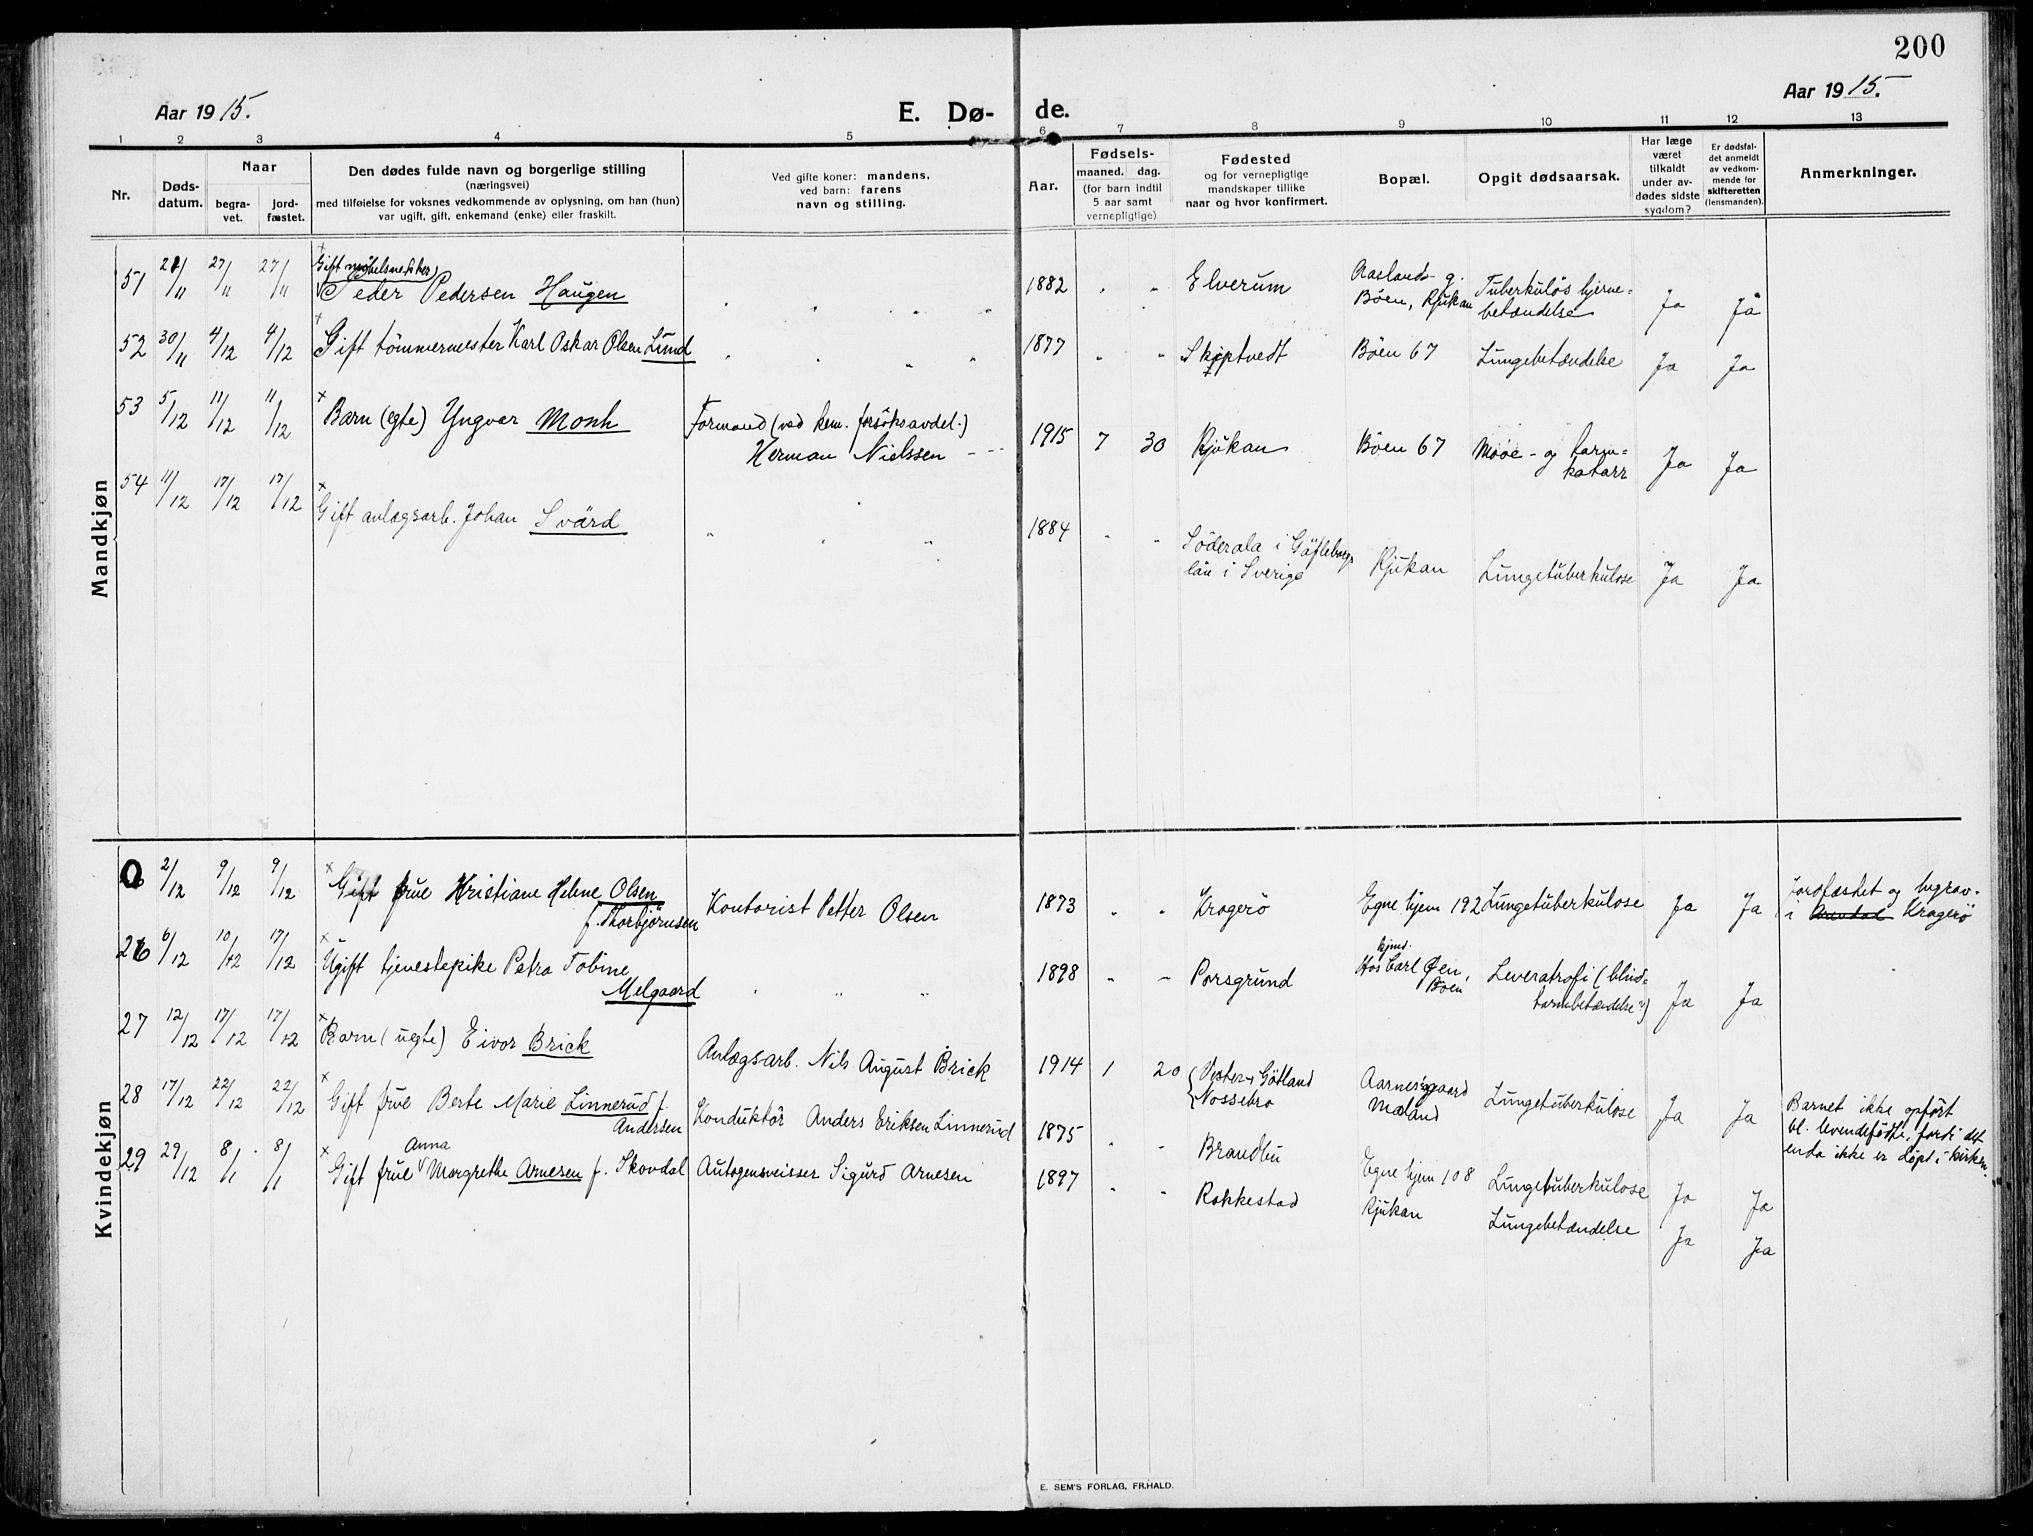 200
Aar 1915.
E. Dø-
de.
Aar 1915.
1 2 3 4 5 6 7 8 9 10 11 12 13
Nr.
Døds-
datum.
Naar
begra-
vet.
jord-
fæstet.
Den dødes fulde navn og borgerlige stilling
(næringsvei)
med tilføielse for voksnes vedkommende av oplysning, om han (hun)
var ugift, gift, enkemand (enke) eller fraskilt.
Ved gifte koner: mandens,
ved barn: farens
navn og stilling.
Aar.
Fødsels-
maaned. dag.
(for barn indtil
5 aar samt
vernepligtige)
Fødested
og for vernepligtige
mandskaper tillike
naar og hvor konfirmert.
Bopæl.
Opgit dødsaarsak.
Har læge
været
tilkaldt
under av-
dødes sidste
sygdom?
Er dødsfal-
det anmeldt
av vedkom-
mende for
skifteretten
(lensmanden).
Anmerkninger.
Mandkjøn
51 21/11 27/11 27/11 Gift møbelsnekker
Peder Pedersen Haugen " " " " 1882 " " Elverum Aaslands- g. Bøen, Rjukan Tuberkuløs hjerne=
betændelse Ja Ja
52 30/11 4/12 4/12 Gift tömmermester Karl Oskar Olsen Lund " " " " 1877 " " Skiptvedt Böen 67 Lungebetændelse Ja Ja
53 5/12 11/12 11/12 Barn (egte) Yngvar Monh Formand (ved kem. forsöksavdel.)
Herman Nielssen - - - 1915 7 30 Rjukan Böen 67 Mave- og tarm=
katarr Ja Ja
54 11/12 17/12 17/12 Gift anlægsarb. Johan Svärd " " " " 1884 " " Söderala i Göfleborgs
län i Sverige Rjukan Lungetuberkulose Ja Ja
Kvindekjøn
2/12 9/12 9/12 Gift frue Kristiane Helene Olsen
f. Thorbjørnsen Kontorist Petter Olsen 1873 " " Kragerö Egne hjem 192 Lungetuberkulose Ja Ja Jordfæstet og begrav.
i Kragerö
26 6/12 10/12 17/12 Ugift tjenestepike Petra Tobine
Melgaard " " " 1898 " " Porsgrund Hos Carl Øen,
Böen Leveratrofi (blind=
tarmbetændelse?) Ja Ja
27 12/12 17/12 17/12 Barn (uegte) Eivor Brick Anlægsarb. Nils August Brick 1914 1 20 Vester-Götland
Nossebro Aarnesgaard
Mæland Lungetuberkulose Ja Ja Barnet ikke opfört
bl. levendefödte, fordi det
enda ikke er döpt i kirken
28 17/12 22/12 22/12 Gift frue Berte Marie Linnerud f.
Andersen Konduktör Anders Eriksen Linnerud 1875 " " Brandbu Egne hjem 108 Lungetuberkulose Ja Ja
29 29/12 8/1 8/1 Gift frue Anna Margrethe Arnesen f. Skovdal Autogensveisser Sigurd Arnesen 1897 " " Rakkestad Rjukan Lungebetændelse Ja Ja
E. SEM'S FORLAG, FR.HALD.